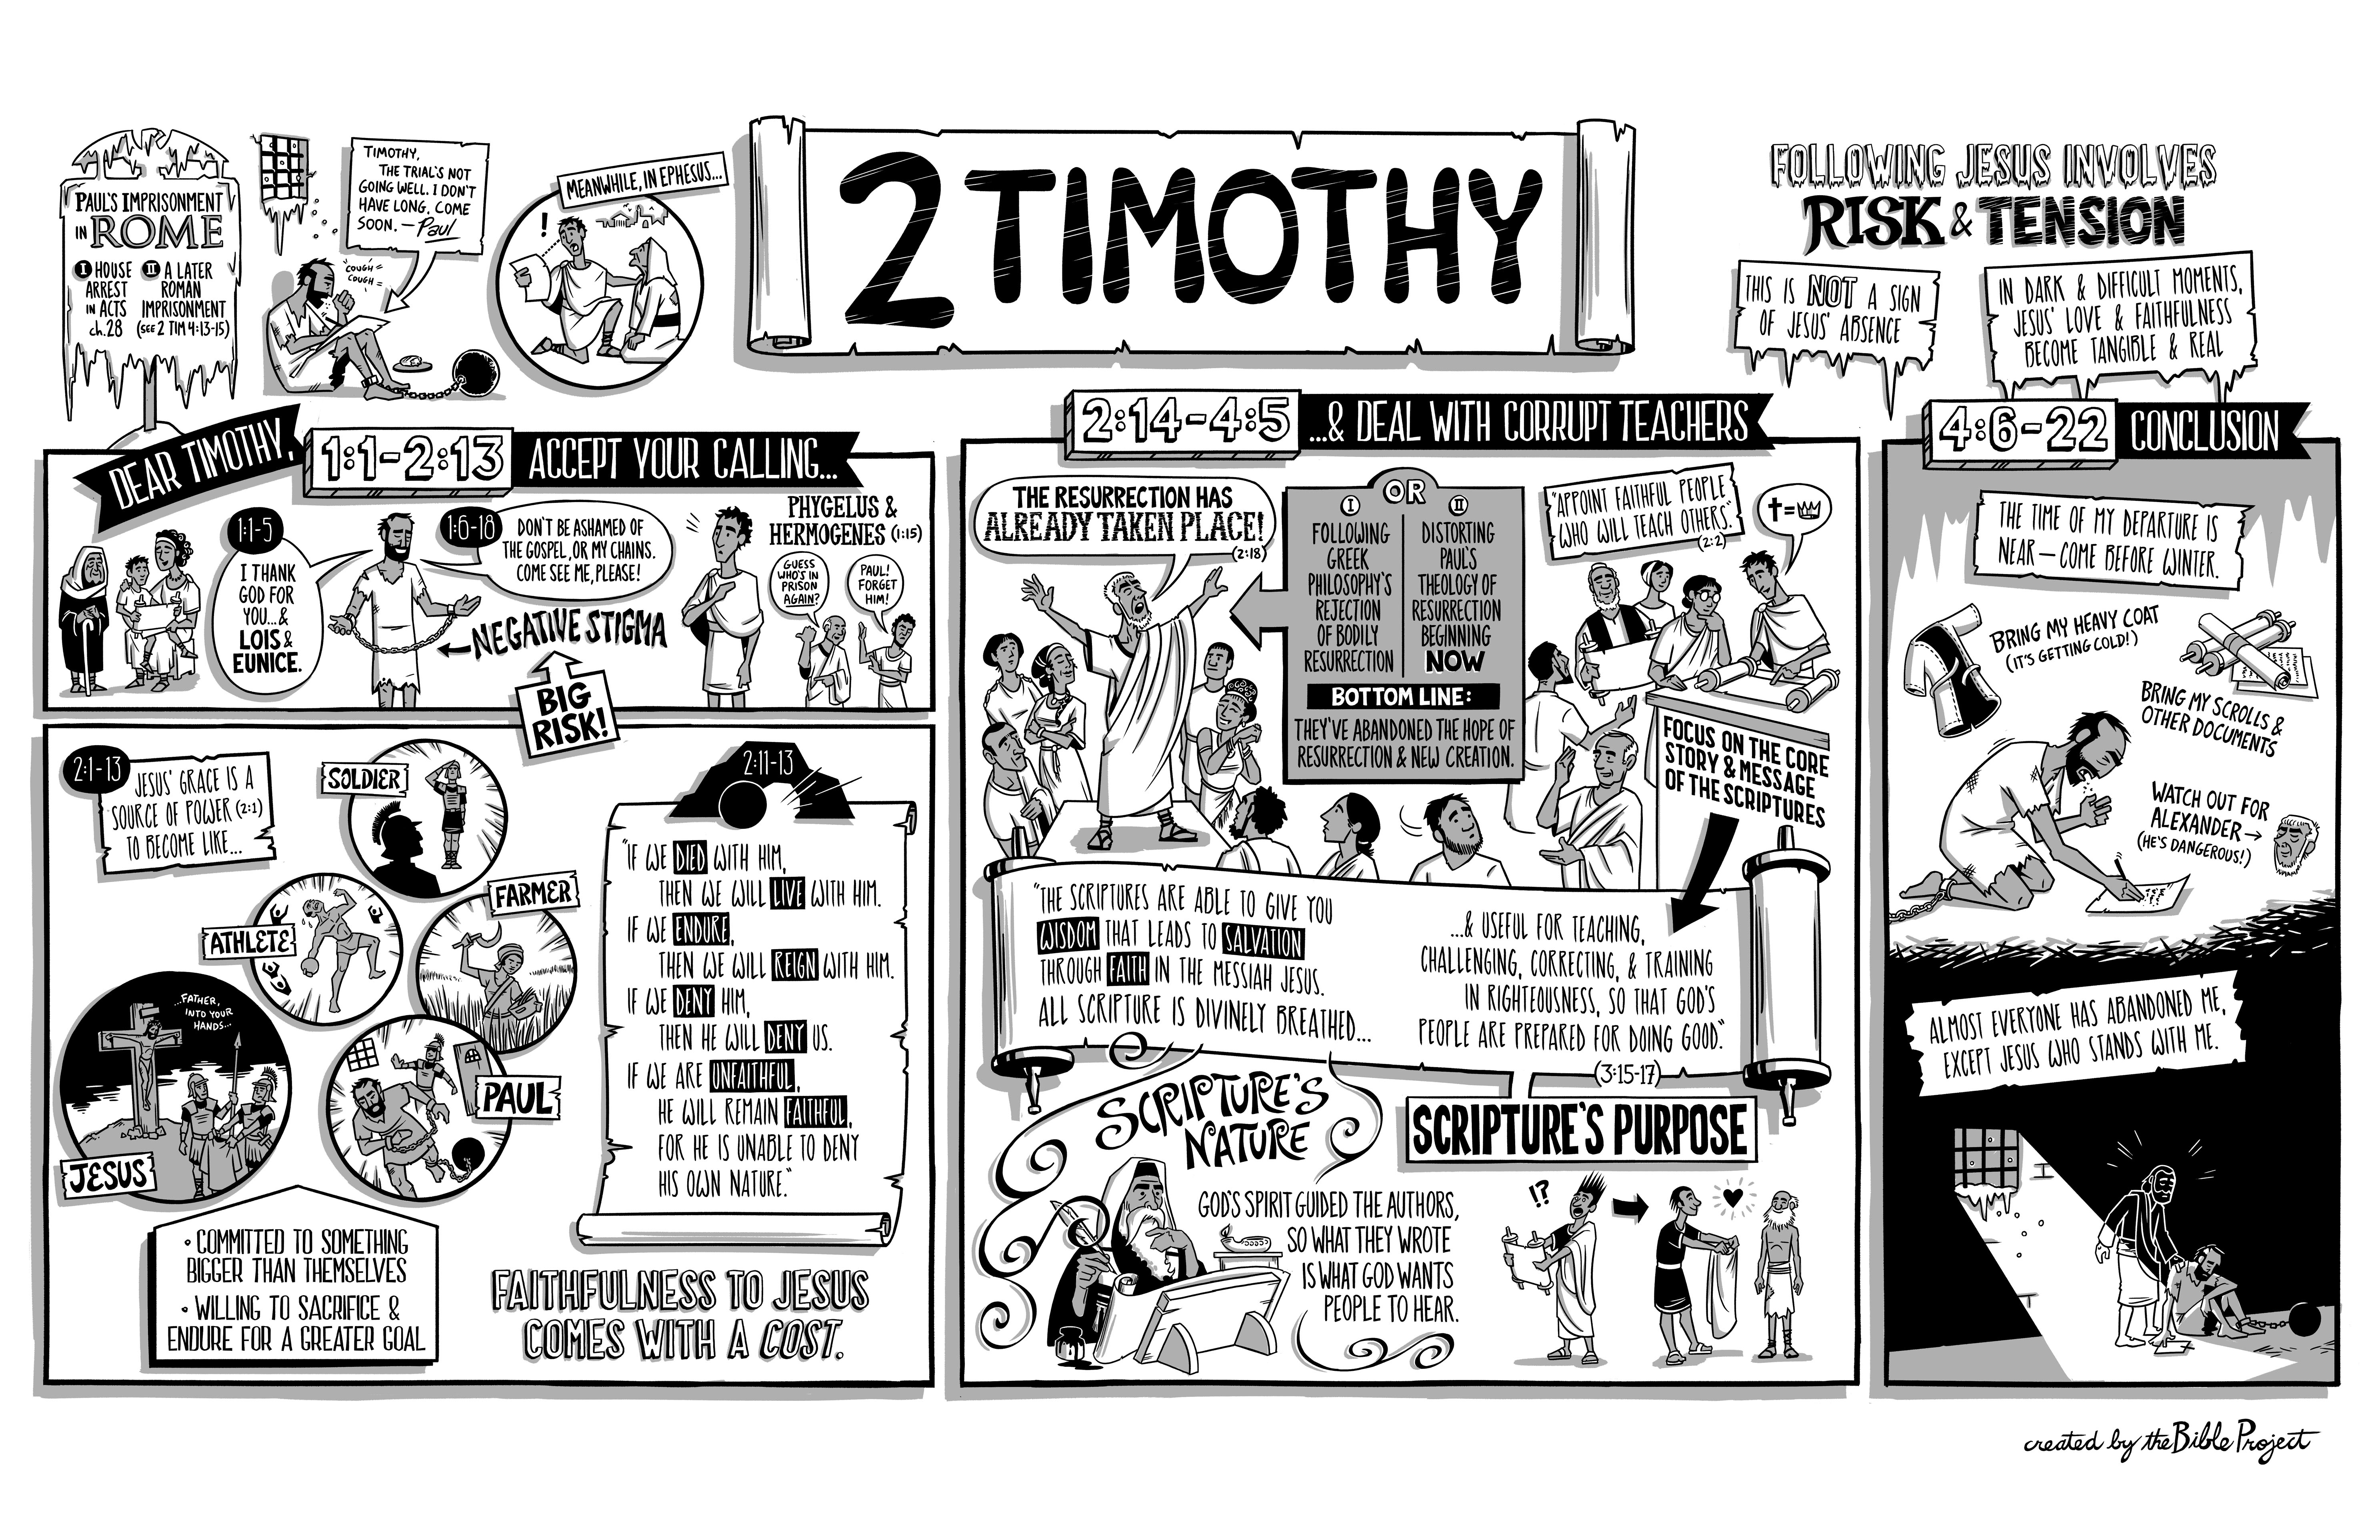 PAUL'S IMPRISONMENT
IN ROME
I HOUSE
ARREST
IN ACTS
ch.28
II A LATER
ROMAN
IMPRISONMENT
(SEE 2 TIM 4:13-15)
TIMOTHY,
THE TRIAL'S NOT
GOING WELL. I DON'T
HAVE LONG. COME
SOON. —Paul
"COUGH=
COUGH=
MEANWHILE, IN EPHESUS...
!
2 TIMOTHY
FOLLOWING JESUS INVOLVES
RISK & TENSION
THIS IS NOT A SIGN
OF JESUS' ABSENCE
IN DARK & DIFFICULT MOMENTS,
JESUS' LOVE & FAITHFULNESS
BECOME TANGIBLE & REAL
DEAR TIMOTHY,
1:1-2:13
ACCEPT YOUR CALLING...
1:1-5
I THANK
GOD FOR
YOU...&
LOIS &
EUNICE.
1:6-18
DON'T BE ASHAMED OF
THE GOSPEL, OR MY CHAINS.
COME SEE ME, PLEASE!
NEGATIVE STIGMA
BIG
RISK!
PHYGELUS &
HERMOGENES (1:15)
GUESS
WHO'S IN
PRISON
AGAIN?
PAUL!
FORGET
HIM!
2:1-13
JESUS' GRACE IS A
SOURCE OF POWER (2:1)
TO BECOME LIKE...
SOLDIER
FARMER
ATHLETE
...FATHER,
INTO YOUR
HANDS...
PAUL
JESUS
• COMMITTED TO SOMETHING
BIGGER THAN THEMSELVES
• WILLING TO SACRIFICE &
ENDURE FOR A GREATER GOAL
2:11-13
"IF WE DIED WITH HIM,
THEN WE WILL LIVE WITH HIM.
IF WE ENDURE,
THEN WE WILL REIGN WITH HIM.
IF WE DENY HIM,
THEN HE WILL DENY US.
IF WE ARE UNFAITHFUL,
HE WILL REMAIN FAITHFUL,
FOR HE IS UNABLE TO DENY
HIS OWN NATURE."
FAITHFULNESS TO JESUS
COMES WITH A COST.
2:14-4:5
...& DEAL WITH CORRUPT TEACHERS
THE RESURRECTION HAS
ALREADY TAKEN PLACE!
(2:18)
OR
I
FOLLOWING
GREEK
PHILOSOPHY'S
REJECTION
OF BODILY
RESURRECTION
II
DISTORTING
PAUL'S
THEOLOGY OF
RESURRECTION
BEGINNING
NOW
BOTTOM LINE:
THEY'VE ABANDONED THE HOPE OF
RESURRECTION & NEW CREATION.
"APPOINT FAITHFUL PEOPLE
WHO WILL TEACH OTHERS."
(2:2)
FOCUS ON THE CORE
STORY & MESSAGE
OF THE SCRIPTURES
"THE SCRIPTURES ARE ABLE TO GIVE YOU
WISDOM THAT LEADS TO SALVATION
THROUGH FAITH IN THE MESSIAH JESUS.
ALL SCRIPTURE IS DIVINELY BREATHED...
...& USEFUL FOR TEACHING,
CHALLENGING, CORRECTING, & TRAINING
IN RIGHTEOUSNESS, SO THAT GOD'S
PEOPLE ARE PREPARED FOR DOING GOOD."
(3:15-17)
SCRIPTURE'S
NATURE
GOD'S SPIRIT GUIDED THE AUTHORS,
SO WHAT THEY WROTE
IS WHAT GOD WANTS
PEOPLE TO HEAR.
SCRIPTURE'S PURPOSE
!?
4:6-22
CONCLUSION
THE TIME OF MY DEPARTURE IS
NEAR — COME BEFORE WINTER.
BRING MY HEAVY COAT
(IT'S GETTING COLD!)
BRING MY SCROLLS &
OTHER DOCUMENTS
WATCH OUT FOR
ALEXANDER→
(HE'S DANGEROUS!)
ALMOST EVERYONE HAS ABANDONED ME,
EXCEPT JESUS WHO STANDS WITH ME.
created by the Bible Project